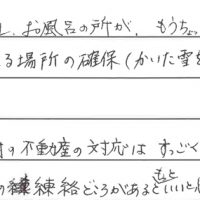 お風呂の所が、もうちょっ
る場所の確保(かいた雪を
の不動産の対応は すっごく
の 練絡どころがあるともっといいと